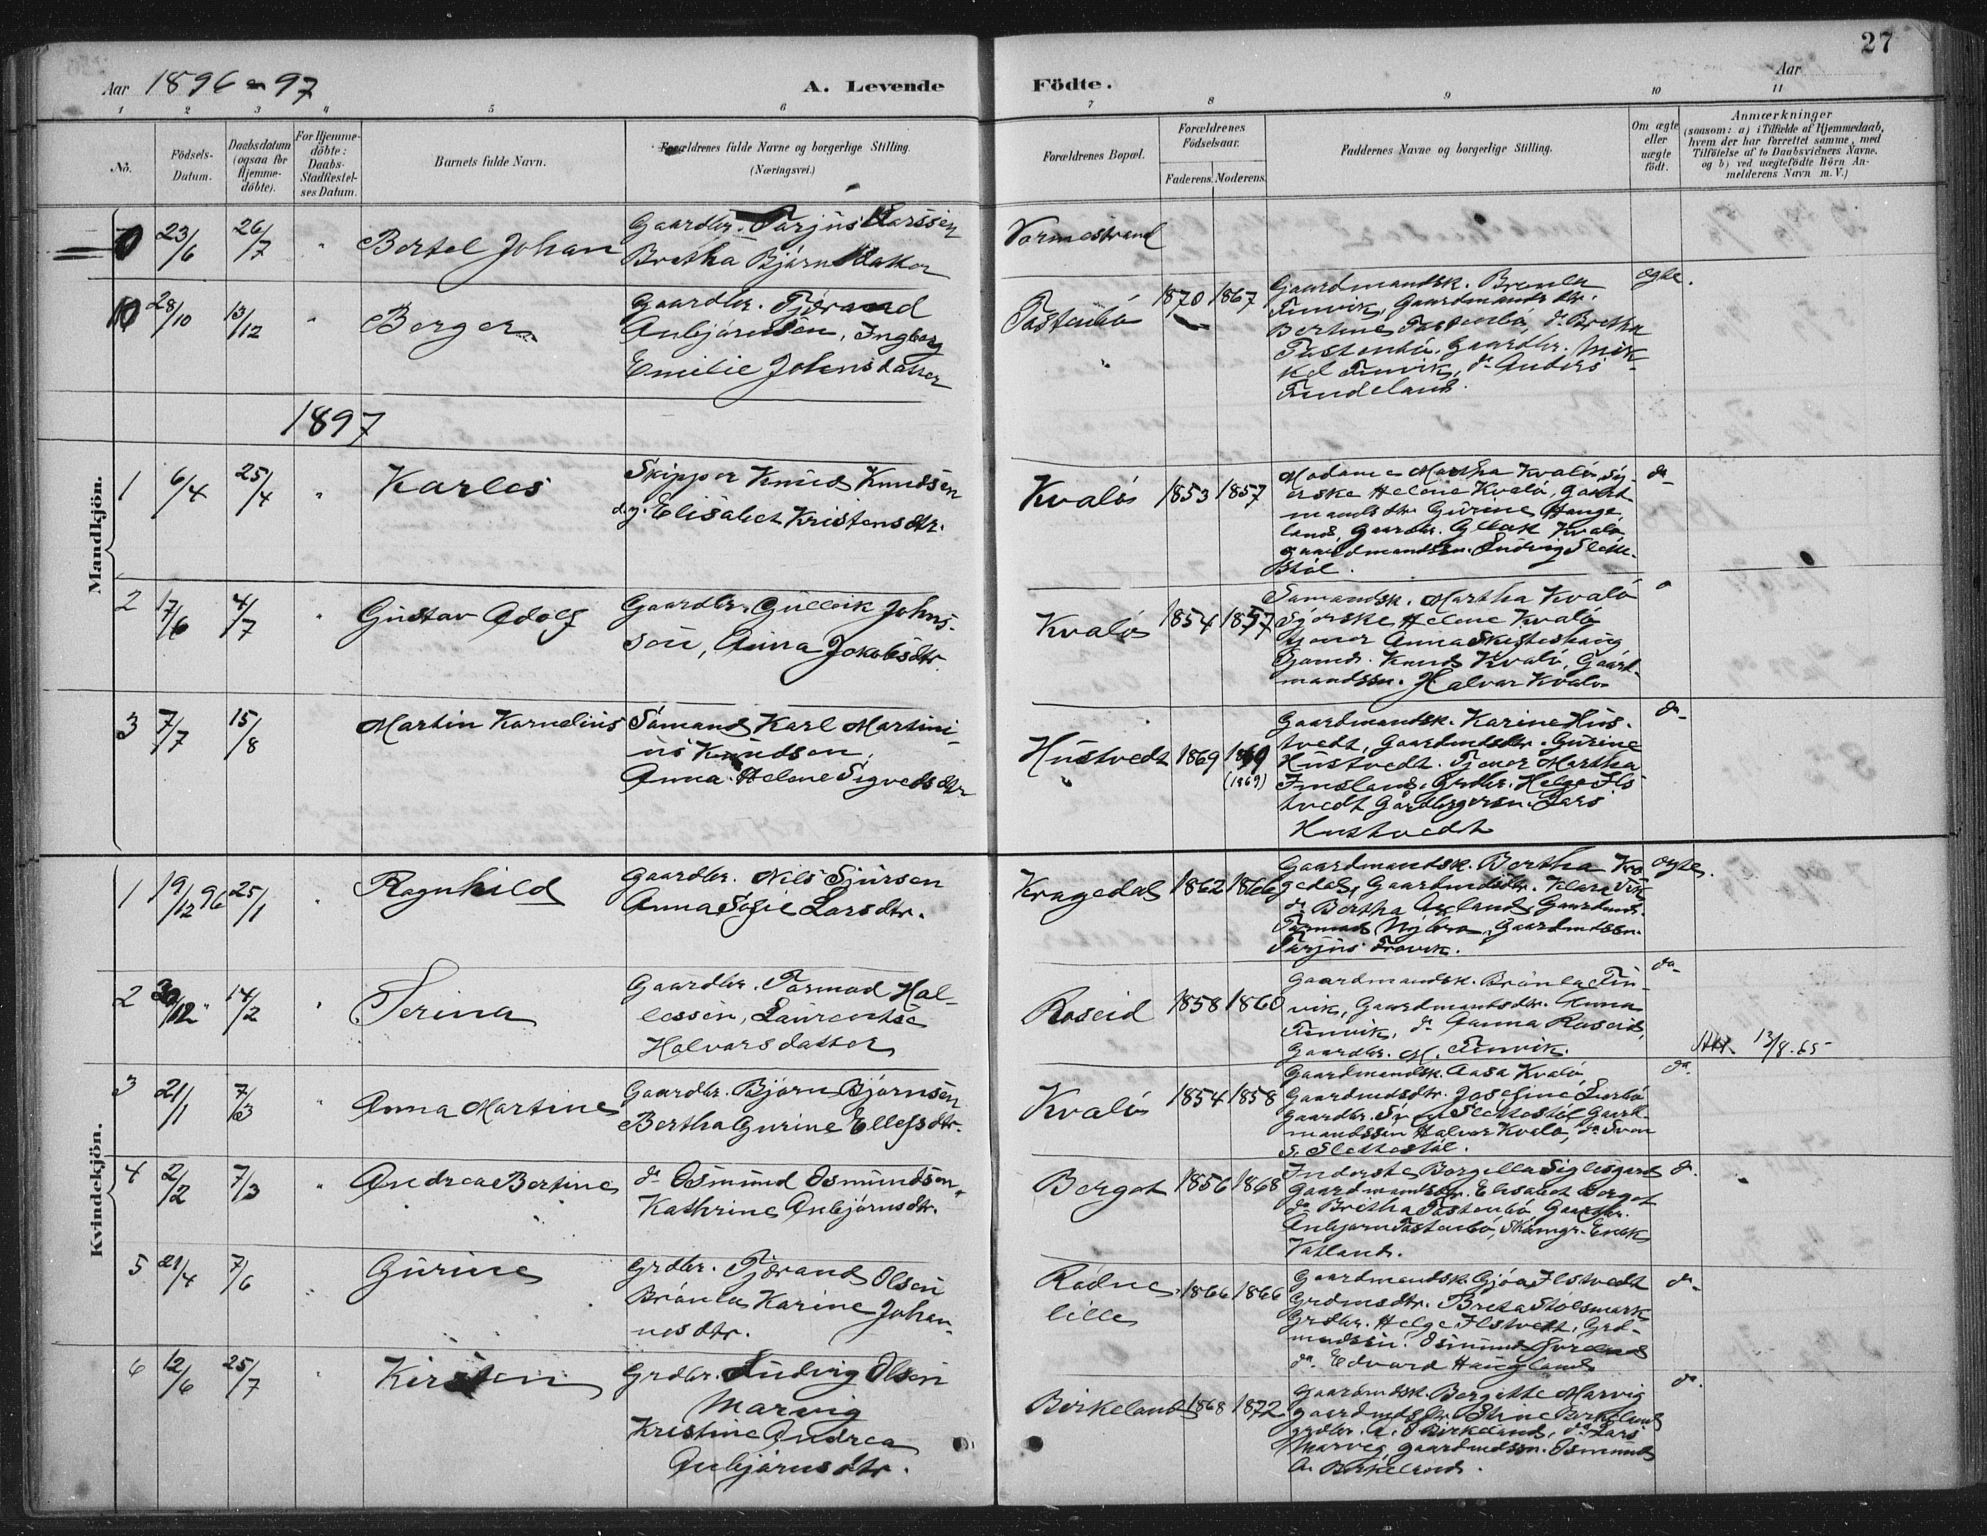 27
Aar 1896 - 97
A. Levende
Födte.
Aar
1 2 3 4 5 6 7 8 9 10 11
No.
Födsels-Datum.
Daabsdatum (ogsaa for Hjemme-döbte).
For Hjemme-döbte: Daabs-Stadfæstel-ses Datum.
Barnets fulde Navn.
Forældrenes fulde Navne og borgerlige Stilling. (Næringsvei.)
Forældrenes Bopæl.
Forældrenes Födselsaar.
Faderens. Moderens.
Faddernes Navne og borgerlige Stilling.
Om ægte eller uægte födt.
Anmærkninger
(saasom: a) i Tilfælde af Hjemmedaab, hvem der har forrettet samme, med Tilföielse af to Daabsvidners Navne. og b) ved uægtefödte Börn An-melderens Navn m. V.)
Mandkjön.
23/6 26/7 " Bertel Johan
Gaardbr. Tarjus Larssen
Bretha Björnsdatter
Vormestrand
10 28/10 13/12 " Berger
Gaardbr. Tjörand
Anbjörnsen, Ingborg
Emilie Johnsdatter
Tastenbö 1870 1867
Gaardmandsk. Brønla
Finvik, Gaardmands dtr.
Bertine Tastenbö, do Bretha
Tastenbö. Gaardbr. Mik-
kel Finvik, do Anders
ægte.
1897
1 6/4 25/4 " Karles
Skipper Knud Knudsen
og Elisabet Kristensdtr.
Kvalö 1853 1857
Madame Martha Kvalö, Sy-
erske Helene Kvalö, Gaard
mands dtr Gurine Hauge
land, Gaardbr. Kvalö
gaardmandssn. Ludvig Slette
stöl.
do
2 17/6 4/7 " Gustav Adolf
Gaardbr. Gullvik Johns-
sen, Anna Jakobsdtr.
Kvalö 1854 1857
Sømandsk. Martha Kvalö
Syerske Helene Kvalö
tjener Anna
Knud Kvalö, Gaard-
mandssn. Halvar Kvalö
3 7/7 15/8 Martin Kornelius
Sömand Karl Martini-
us Knudsen,
Anna Helene Sigvedsdtr
Hustvedt 1869 (1869)
Gaardmandsk. Karine Hus-
tvedt, Gaardmdsdtr. Gurine
Hustvedt. Tjener Martha
Imsland, Grdbr. Helge Ils
tvedt Lars
Hustvedt
do
Kvindekjön.
1 19/12 96 25/1 Ragnhild
Gaardbr. Nils Sjursen
Anna Sofie Larsdtr.
Kragedal 1862 1866
Gaardmandsk. Bertha Kra
gedal, Gaardmdsdtr. Klara Vik
do Bertha
Tarjus
ægte.
2 30/12 " 14/2 " Serina
Gaardbr. Tormod Hal-
lessen, Laurentse
Halvorsdatter
Roseid 1858 1860
Gaardmandsk. Brönla Fin-
vik, Gaardmandsdtr. Anna
Finvik, do Gunna Roseid,
Gaardbr. M. Finvik.
do
13/8-65
3 21/1 7/3 " Anna Martine
Gaardbr. Björn Björnsen
Bertha Gurine Ellefsdtr.
Kvalö 1854 1858
Gaardmandsk. Aasa Kvalö
Gaardmdsdtr. Josefine
Slettestöl Gaard-
mandssön Halvor Kvalö, do Sven
S. Slettestöl.
do
4 2/2 7/3 " Andrea Bertine
do Osmund Osmundsen,
Kathrine Anbjörnsdtr.
Berget 1856 1868
Inderste
Gaardmandsdtr. Elisabet Berget
do Bretha Tastenbö, Gaardbr.
Anbjørn Tastenbö,
Vatland.
do
5 21/4 7/6 Gurine
Grdbr. Tjörand Olsen
Brönla Karine Johan-
nesdtr.
Rødne
lille 1866 1866
Gaardmandsk. Gjöa Ilstvedt
Grdmdsdtr. Breta Stölsmark
Grdbr. Helge Ilstvedt. Grd-
mandssön. Osmund
do Edvard Haugland
do
6 12/6 25/7 " Kirsten
Grdbr. Ludvig Olsen
Marvig
Kristine Andrea
Anbjörnsdtr.
Birkeland 1868 1872
Gaardmdsk. Bergitte Marvig
gaardmdsdtr Stine Birkeland
grdbr. A. O. Birkeland, do Lars
Marvig, gaardmdssn. Osmund
A. Birkeland.
do